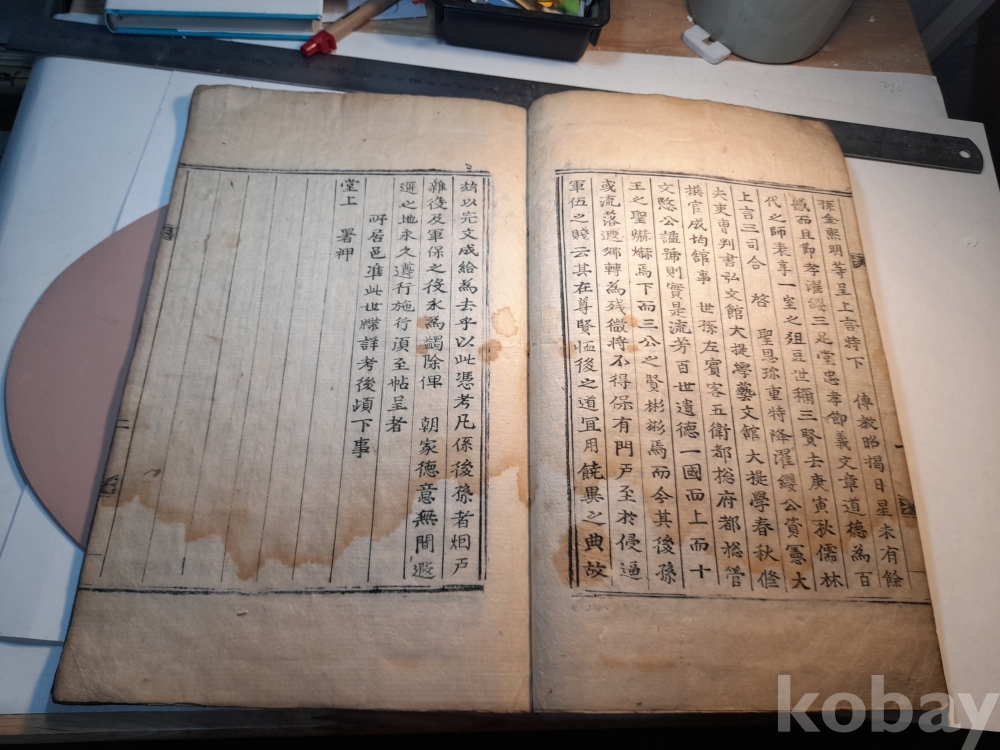 孫金熙明等呈上言特下　傳敎昭揭日星未有餘
憾而且節孝濯纓三足堂忠孝節義文章道德爲百
代之師表享一室之俎豆世稱三賢去庚寅秋儒林
上言三司合　啓　聖恩珎重特降濯纓公貲憲大
夫吏曹判書弘文館大提學藝文館大提學春秋修
撰官成均館事　世孫左賓客五衛都捴府都捴管
文愍公諡號則實是流芳百世遺德一國而上而十
王之聖爀爀焉下而三公之賢彬彬焉而今其後孫
或流落遐鄕轉爲殘微將不得保有門戶至於侵逼
軍伍之賤云其在尊賢恤後之道冝用饒異之典故
玆以完文成給爲去乎以此憑考凡係後孫者烟戶
雜役及軍保之役永爲蠲除俾　朝家德意無間遐
邇之地永久遵行施行湏至帖呈者
所居邑准此世牒詳考後頉下事
堂上　署押
二
kobay